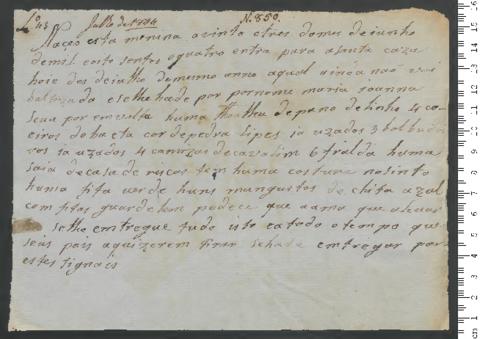 Lº 43 Julho de 1804 N. 850.
Naceo esta menina a vinte e tres do mes de iunho
de mil eoito sentos e quatro entra para a santa caza
hoie dos de iulho do mesmo anno a qual ainda naõ vai
baltizada e se lhe hade por por nome maria Joanna
Leua por em volta huma de pano de linho 4 co-
eiros de baeta cor de pedra lipes ia uzados 3
ros ia uzados 4 camizas de cavalim 6 fralda huma
saia de casa de riscas tem huma costura no sinto
huma fita verde huns manguitos de chita azul
com fitas guardese bem p a que a ama que a levar
se lhe entregue tudo isto e a todo o tempo que
seus pais a quizerem tirar se hade entregar por
estes signais